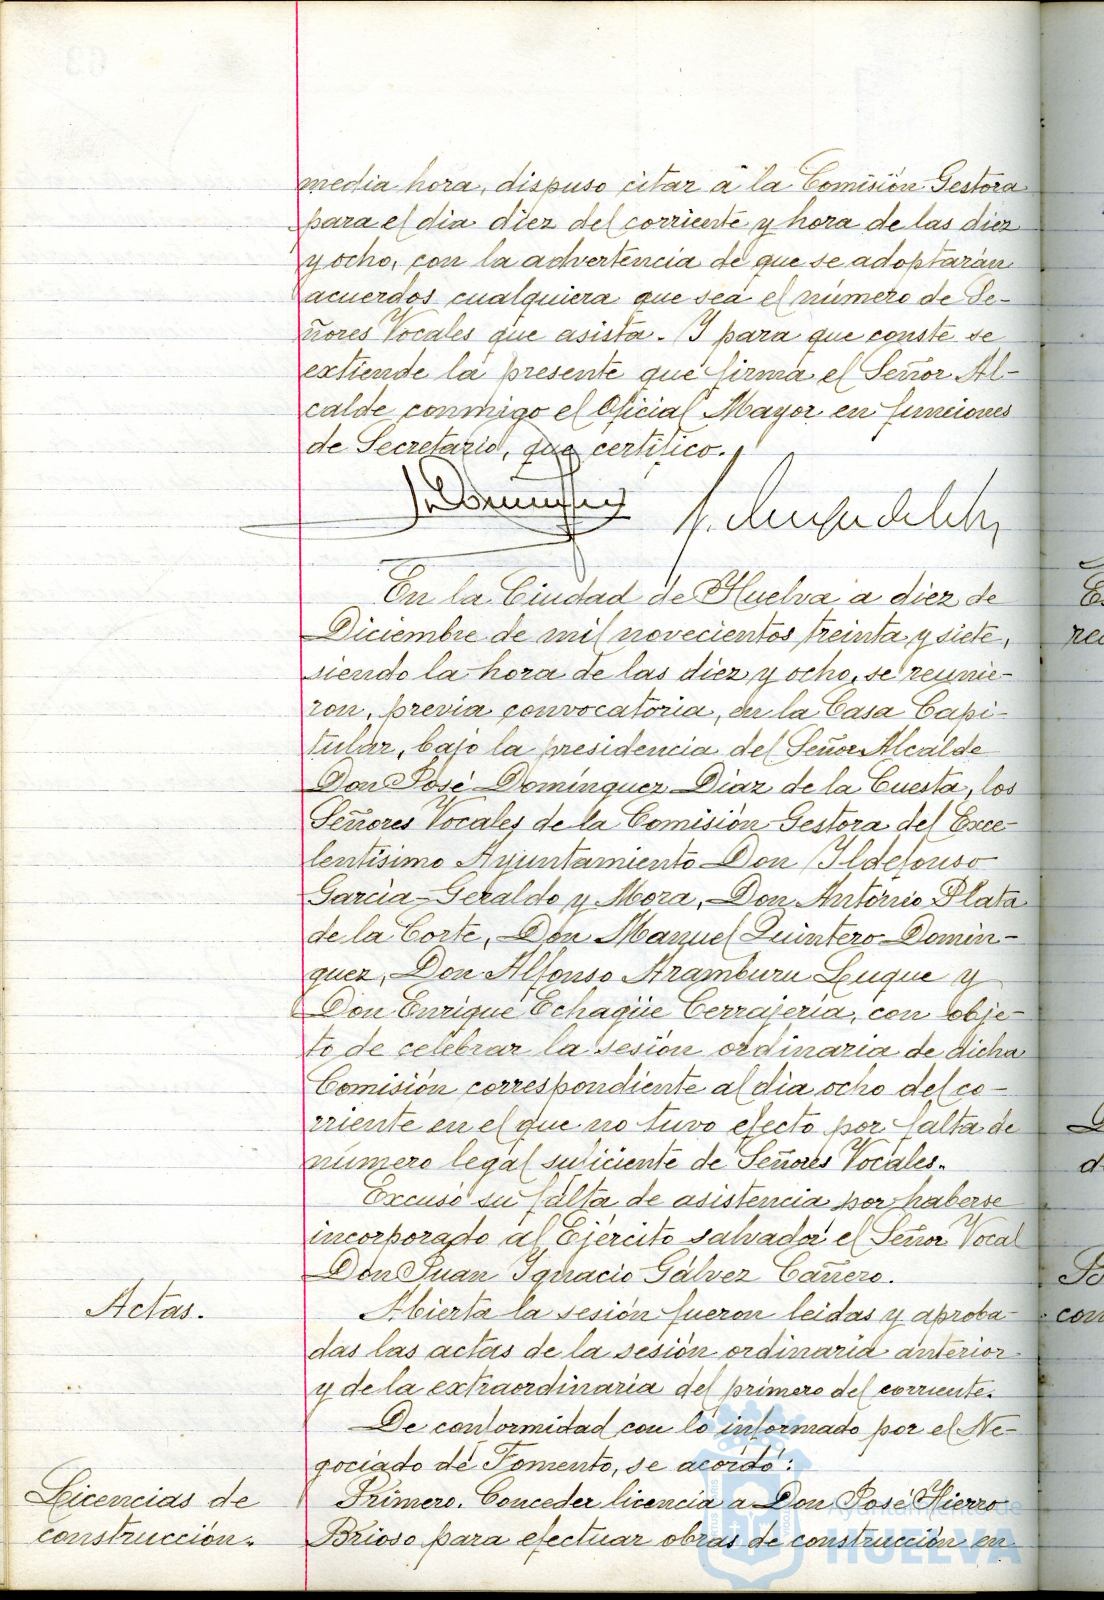 media hora, dispuso citar a la Comisión Gestora
para el dia diez del corriente y hora de las diez
y ocho, con la advertencia de que se adoptarán
acuerdos cualquiera que sea el número de Se-
ñores Vocales que asista. Y para que conste se
extiende la presente que firma el Señor Al-
calde conmigo el Oficial Mayor en funciones
de Secretario, que certifico.
En la Ciudad de Huelva a diez de
Diciembre de mil novecientos treinta y siete,
siendo la hora de las diez y ocho, se reunie-
ron, previa convocatoria, en la Casa Capi-
tular, bajo la presidencia del Señor Alcalde
Don José Domínguez Diaz de la Cuesta, los
Señores Vocales de la Comisión Gestora del Exce-
lentisimo Ayuntamiento Don Ildefonso
Garcia-Geraldo y Mora, Don Antonio Plata
de la Corte, Don Manuel Quintero Domin-
guez, Don Alfonso Aramburu Luque y
Don Enrique Echagüe Cerrajeria, con obje-
to de celebrar la sesión ordinaria de dicha
Comisión correspondiente al dia ocho del co-
rriente en el que no tuvo efecto por falta de
número legal suficiente de Señores Vocales.
Excusó su falta de asistencia por haberse
incorporado al Ejército salvador el Señor Vocal
Don Juan Ignacio Gálvez Cañero.
Actas.
Abierta la sesión fueron leidas y aproba-
das las actas de la sesión ordinaria anterior
y de la extraordinaria del primero del corriente.
De conformidad con lo informado por el Ne-
gociado de Fomento, se acordó:
Licencias de
construcción.
Primero. Conceder licencia a Don José Hierro
Brioso para efectuar obras de construcción en
Ayuntamiento de
HUELVA